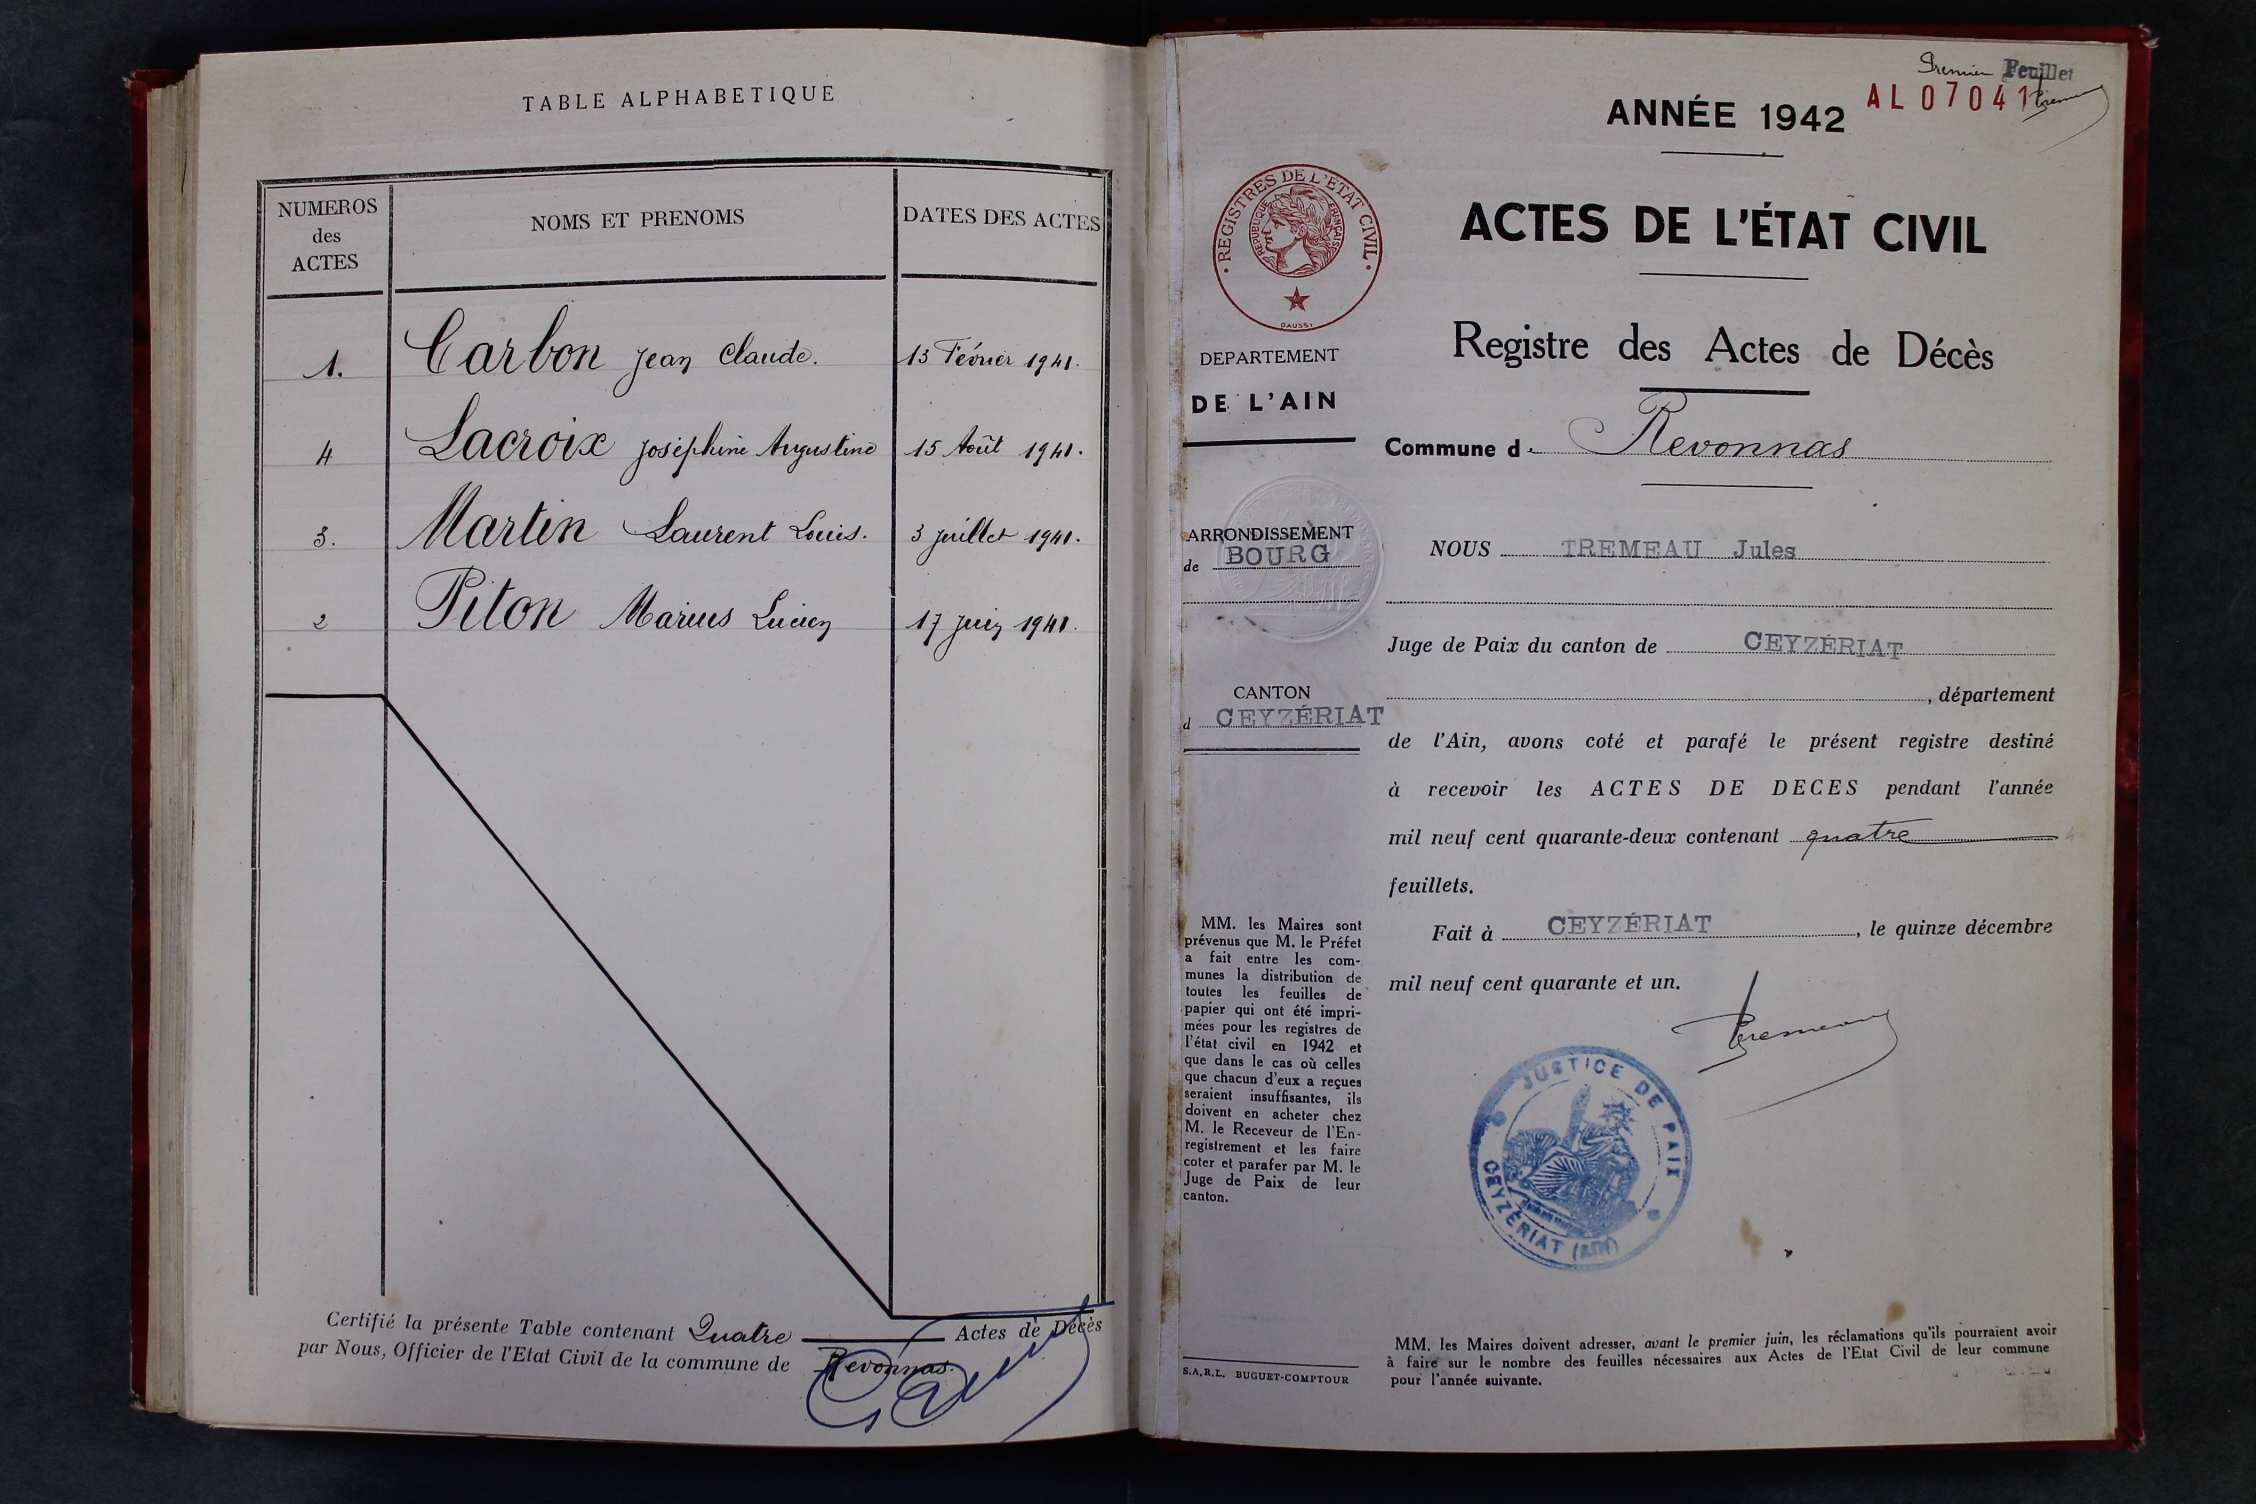 TABLE ALPHABETIQUE
NUMEROS
des
ACTES
NOMS ET PRENOMS
DATES DES ACTES
1. Carbon Jean Claude. 13 Février 1941.
4 Lacroix Joséphine Augustine 15 Août 1941.
3. Martin Laurent Louis. 3 juillet 1941.
2 Piton Marius Lucien 17 juin 1941.
Certifié la présente Table contenant Quatre Actes de Décès
par Nous, Officier de l'Etat Civil de la commune de Revonnas.
Premier Feuillet
AL07041
Tremeau
ANNÉE 1942
REGISTRES DE L'ETAT CIVIL
REPUBLIQUE FRANÇAISE
DAUSSY
ACTES DE L'ÉTAT CIVIL
Registre des Actes de Décès
DEPARTEMENT
DE L'AIN
Commune d. Revonnas
ARRONDISSEMENT
de BOURG
CANTON
d CEYZÉRIAT
NOUS TREMEAU Jules
Juge de Paix du canton de CEYZÉRIAT
, département
de l'Ain, avons coté et parafé le présent registre destiné
à recevoir les ACTES DE DECES pendant l'année
mil neuf cent quarante-deux contenant quatre 4
feuillets.
Fait à CEYZÉRIAT, le quinze décembre
mil neuf cent quarante et un.
Tremeau
JUSTICE DE PAIX
CEYZÉRIAT (AIN)
MM. les Maires sont
prévenus que M. le Préfet
a fait entre les com-
munes la distribution de
toutes les feuilles de
papier qui ont été impri-
mées pour les registres de
l'état civil en 1942 et
que dans le cas où celles
que chacun d'eux a reçues
seraient insuffisantes, ils
doivent en acheter chez
M. le Receveur de l'En-
registrement et les faire
coter et parafer par M. le
Juge de Paix de leur
canton.
S.A.R.L. BUGUET-COMPTOUR
MM. les Maires doivent adresser, avant le premier juin, les réclamations qu'ils pourraient avoir
à faire sur le nombre des feuilles nécessaires aux Actes de l'Etat Civil de leur commune
pour l'année suivante.